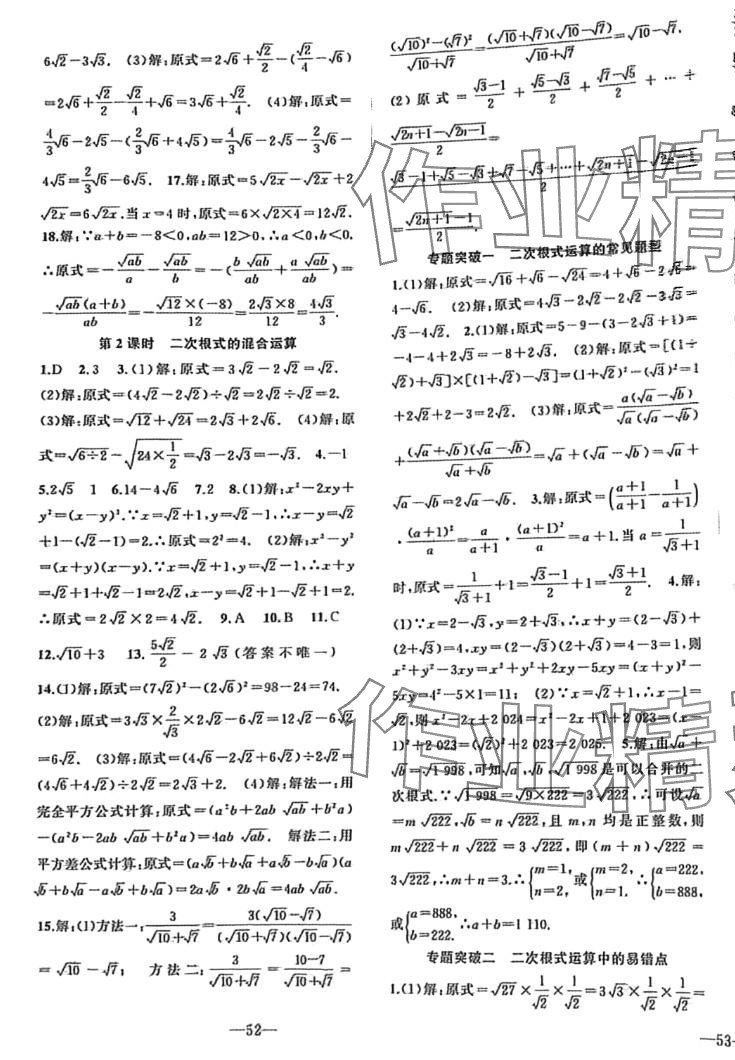 6√2－3√3. (3)解:原式＝2√6＋√2/2－(√2/4－√6)
＝2√6＋√2/2－√2/4＋√6＝3√6＋√2/4. (4)解:原式＝
4/3√6－2√5－(2/3√6＋4√5)＝4/3√6－2√5－2/3√6－
4√5＝2/3√6－6√5. 17.解:原式＝5√2x－√2x＋2
√2x＝6√2x. 当x＝4时,原式＝6×√2×4＝12√2.
18.解:∵a＋b＝－8<0,ab＝12>0,∴a<0,b<0,
∴原式＝－√ab/a－√ab/b＝－(b√ab/ab＋a√ab/ab)＝
－√ab(a＋b)/ab＝－√12×(－8)/12＝2√3×8/12＝4√3/3.
第2课时 二次根式的混合运算
1.D 2.3 3.(1)解:原式＝3√2－2√2＝√2.
(2)解:原式＝(4√2－2√2)÷√2＝2√2÷√2＝2.
(3)解:原式＝√12＋√24＝2√3＋2√6. (4)解:原
式＝√6÷2－√24×1/2＝√3－2√3＝－√3. 4.－1
5.2√5 1 6.14－4√6 7.2 8.(1)解:x²－2xy＋
y²＝(x－y)².∵x＝√2＋1,y＝√2－1,∴x－y＝√2
＋1－(√2－1)＝2.∴原式＝2²＝4. (2)解:x²－y²
＝(x＋y)(x－y).∵x＝√2＋1,y＝√2－1,∴x＋y
＝√2＋1＋√2－1＝2√2,x－y＝√2＋1－√2＋1＝2.
∴原式＝2√2×2＝4√2. 9.A 10.B 11.C
12.√10＋3 13.5√2/2－2√3(答案不唯一)
14.(1)解:原式＝(7√2)²－(2√6)²＝98－24＝74.
(2)解:原式＝3√3×2/√3×2√2－6√2＝12√2－6√2
＝6√2. (3)解:原式＝(4√6－2√2＋6√2)÷2√2＝
(4√6＋4√2)÷2√2＝2√3＋2. (4)解:解法一:用
完全平方公式计算:原式＝(a²b＋2ab√ab＋b²a)
－(a²b－2ab√ab＋b²a)＝4ab√ab. 解法二:用
平方差公式计算:原式＝(a√b＋b√a＋a√b－b√a)(a
√b＋b√a－a√b＋b√a)＝2a√b·2b√a＝4ab√ab.
15.解:(1)方法一:3/(√10＋√7)＝3(√10－√7)/((√10＋√7)(√10－√7))
＝√10－√7; 方法二:3/(√10＋√7)＝(10－7)/(√10＋√7)＝
—52—
((√10)²－(√7)²)/(√10＋√7)＝(√10＋√7)(√10－√7)/(√10＋√7)＝√10－√7.
(2)原式＝(√3－1)/2＋(√5－√3)/2＋(√7－√5)/2＋…＋
(√2n＋1－√2n－1)/2＝
(√3－1＋√5－√3＋√7－√5＋…＋√2n＋1－√2n－1)/2
＝(√2n＋1－1)/2.
专题突破一 二次根式运算的常见题型
1.(1)解:原式＝√16＋√6－√24＝4＋√6－2√6＝
4－√6. (2)解:原式＝4√3－2√2－2√2－3√3＝
√3－4√2. 2.(1)解:原式＝5－9－(3－2√3＋1)＝
－4－4＋2√3＝－8＋2√3. (2)解:原式＝[(1＋
√2)＋√3]×[(1＋√2)－√3]＝(1＋√2)²－(√3)²＝1
＋2√2＋2－3＝2√2. (3)解:原式＝a(√a－√b)/(√a(√a－√b))
＋(√a＋√b)(√a－√b)/(√a＋√b)＝√a＋(√a－√b)＝√a＋
√a－√b＝2√a－√b. 3.解:原式＝((a＋1)/(a＋1)－1/(a＋1))
·(a＋1)²/a＝a/(a＋1)·(a＋1)²/a＝a＋1.当a＝1/(√3＋1)
时,原式＝1/(√3＋1)＋1＝(√3－1)/2＋1＝(√3＋1)/2. 4.解:
(1)∵x＝2－√3,y＝2＋√3,∴x＋y＝(2－√3)＋
(2＋√3)＝4,xy＝(2－√3)(2＋√3)＝4－3＝1,则
x²＋y²－3xy＝x²＋y²＋2xy－5xy＝(x＋y)²－
5xy＝4²－5×1＝11; (2)∵x＝√2＋1,∴x－1＝
√2,则x²－2x＋2 024＝x²－2x＋1＋2 023＝(x－
1)²＋2 023＝(√2)²＋2 023＝2 025. 5.解:由√a＋
√b＝√1 998,可知√a,√b,√1 998是可以合并的二
次根式.∵√1 998＝√9×222＝3√222,∴可设√a
＝m√222,√b＝n√222,且m,n均是正整数,则
m√222＋n√222＝3√222,即(m＋n)√222＝
3√222,∴m＋n＝3.∴{m＝1,n＝2,或{m＝2,n＝1,∴{a＝222,b＝888,
或{a＝888,b＝222.∴a＋b＝1 110.
专题突破二 二次根式运算中的易错点
1.(1)解:原式＝√27×1/√2×1/√2＝3√3×1/√2×1/√2＝
—53—
作业精
作业精